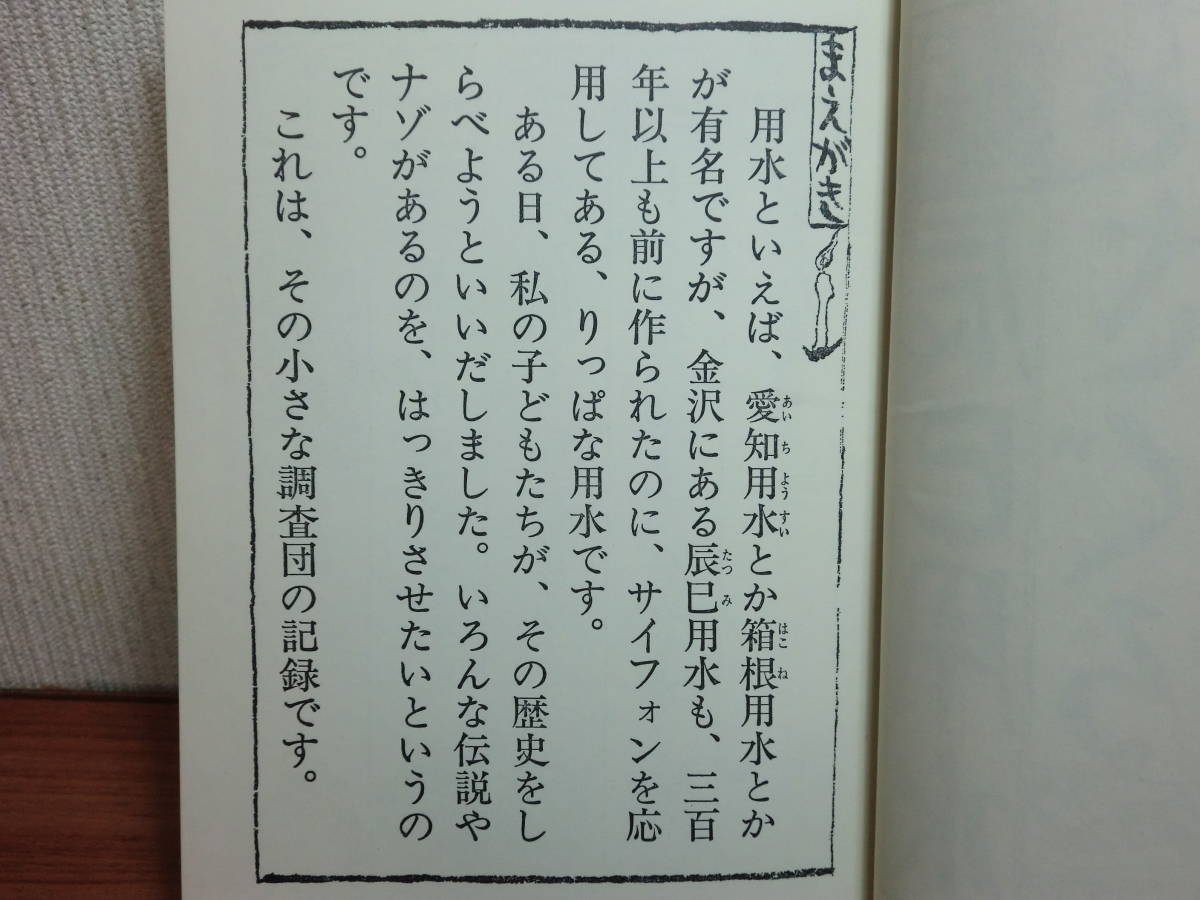 まえがき
用水といえば、愛知用水とか箱根用水とか
が有名ですが、金沢にある辰巳用水も、三百
年以上も前に作られたのに、サイフォンを応
用してある、りっぱな用水です。
ある日、私の子どもたちが、その歴史をし
らべようといいだしました。いろんな伝説や
ナゾがあるのを、はっきりさせたいというの
です。
これは、その小さな調査団の記録です。